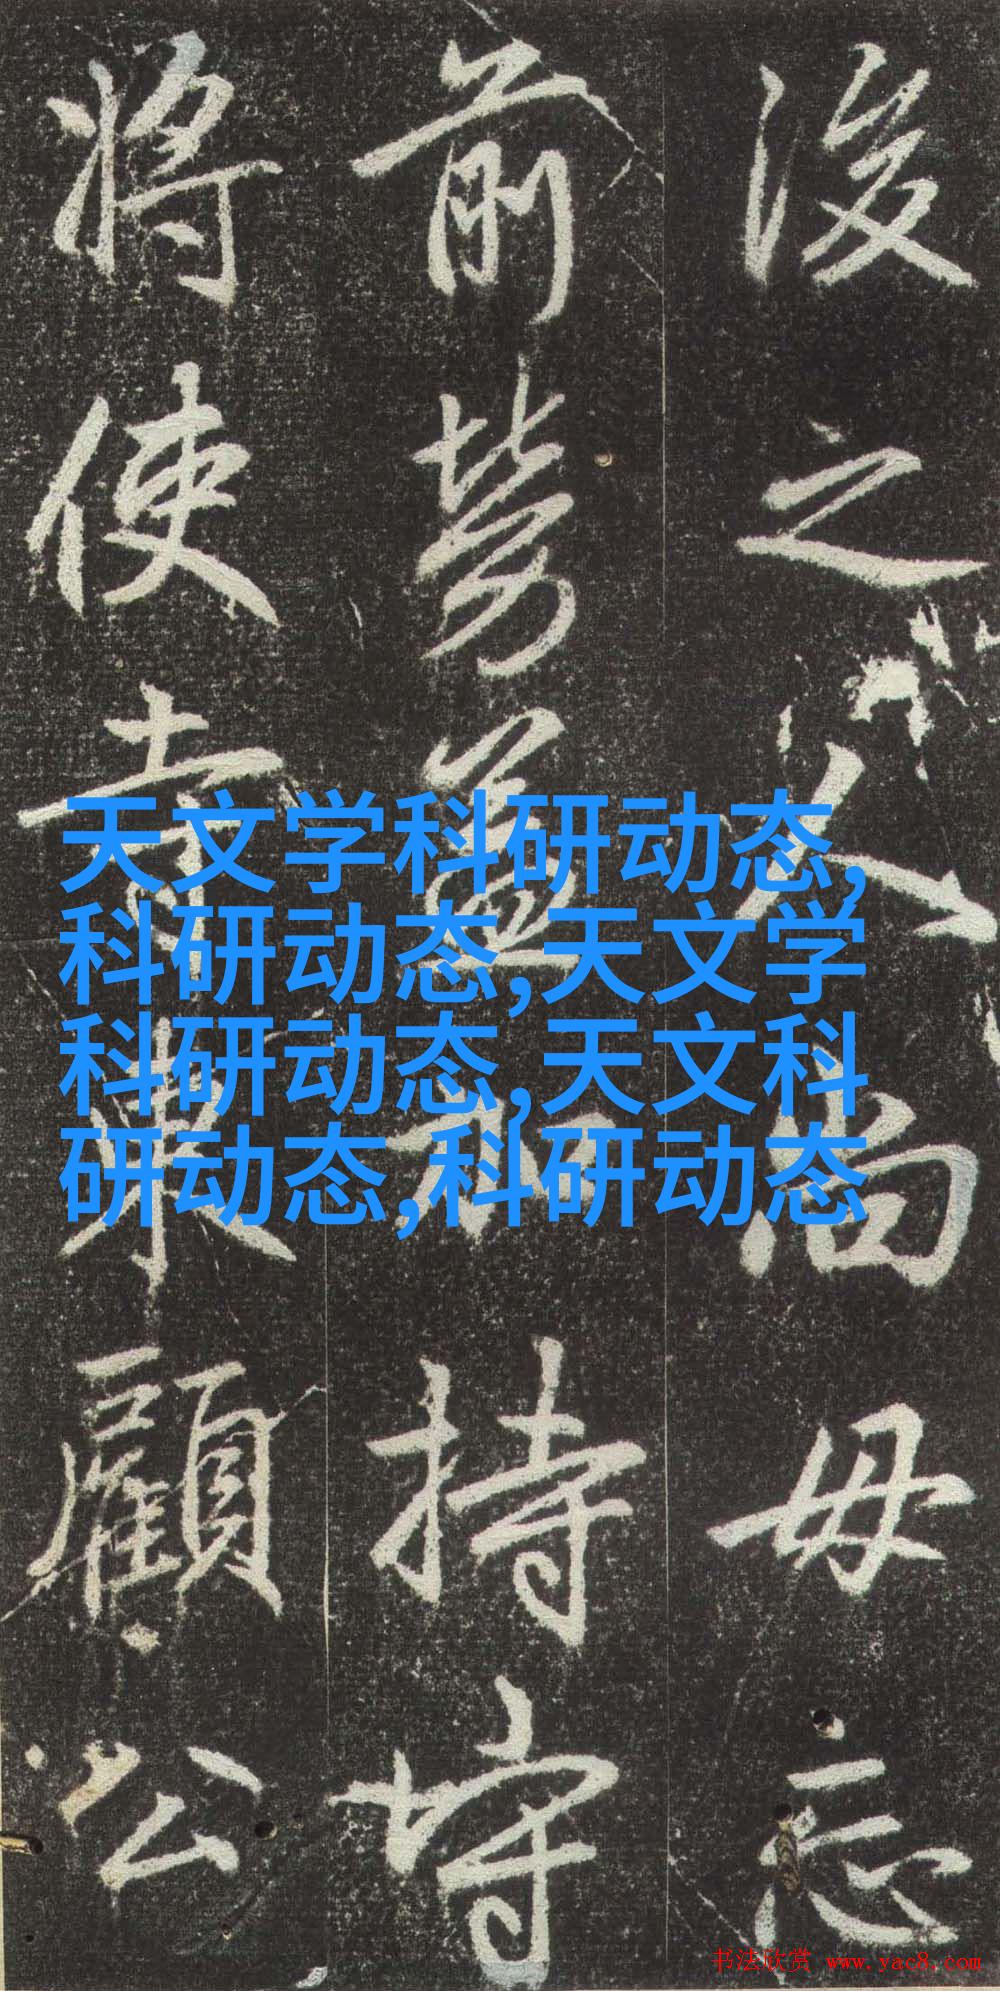 後之人尚毋忘
前勞益持守
将使東顧公
天文学科研动态,
科研动态,天文学
科研动态,天文科
研动态,科研动态
书法欣赏 www.yac8.com